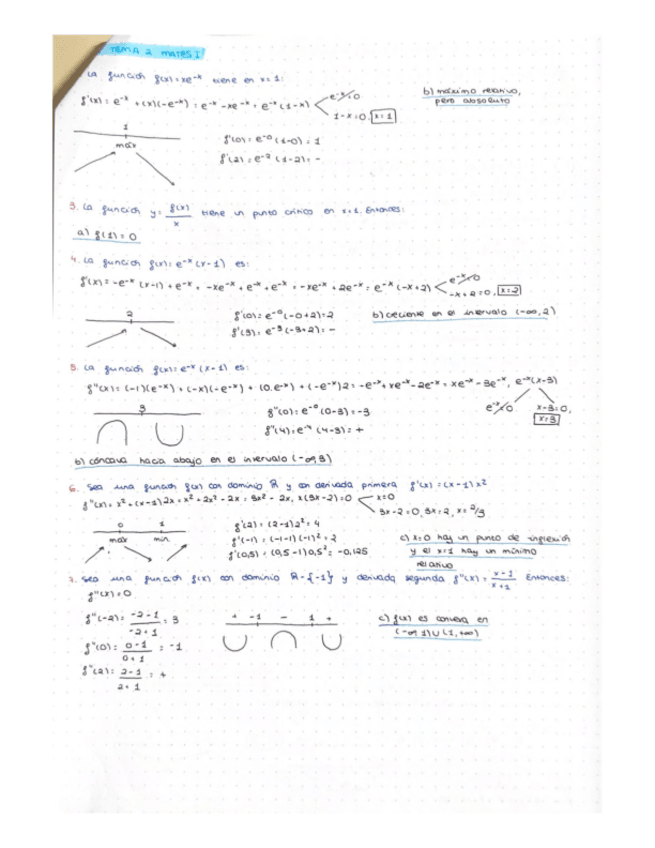 TEMA 2 MATES I
La función f(x)=xe^-x tiene en x=1:
f'(x)= e^-x + (x)(-e^-x) = e^-x - xe^-x = e^-x (1-x) e^-x≠0
1-x=0, x=1
b) máximo relativo,
pero absoluto
1
máx
f'(0)= e^-0 (1-0) = 1
f'(2)= e^-2 (1-2) = -
3. La función y= f(x)/x tiene un punto crítico en x=1. Entonces:
a) f(1)=0
4. La función f(x)= e^-x (x-1) es:
f'(x)= -e^-x (x-1) + e^-x = -xe^-x + e^-x + e^-x = -xe^-x + 2e^-x = e^-x (-x+2) e^-x≠0
-x+2=0, x=2
2
f'(0)= e^-0 (-0+2)=2
f'(3)= e^-3 (-3+2)= -
b) creciente en el intervalo (-∞,2)
5. La función f(x)= e^-x (x-1) es:
f''(x)= (-1)(e^-x) + (-x)(-e^-x) + (0.e^-x) + (-e^-x)2 = -e^-x + xe^-x - 2e^-x = xe^-x - 3e^-x, e^-x (x-3)
e^-x≠0 x-3=0,
x=3
3
f''(0)= e^-0 (0-3)= -3
f''(4)= e^-4 (4-3)= +
b) cóncava hacia abajo en el intervalo (-∞,3)
6. Sea una función f(x) con dominio R y con derivada primera f'(x)=(x-1)x²
f''(x)= x² + (x-1)2x = x² + 2x² - 2x = 3x² - 2x, x(3x-2)=0 x=0
3x-2=0, 3x=2, x=2/3
0 1
máx mín
f'(2)= (2-1)2² = 4
f'(-1)= (-1-1)(-1)² = 2
f'(0,5)= (0,5-1)0,5² = -0,125
c) x=0 hay un punto de inflexión
y el x=1 hay un mínimo
relativo
7. Sea una función f(x) con dominio R-{-1} y derivada segunda f''(x)= x-1/x+1 Entonces:
f''(x)=0
f''(-2)= -2-1/-2+1 = 3
f''(0)= 0-1/0+1 = -1
f''(2)= 2-1/2+1 = +
+ -1 - 1 +
c) f(x) es convexa en
(-∞,1)∪(1,+∞)